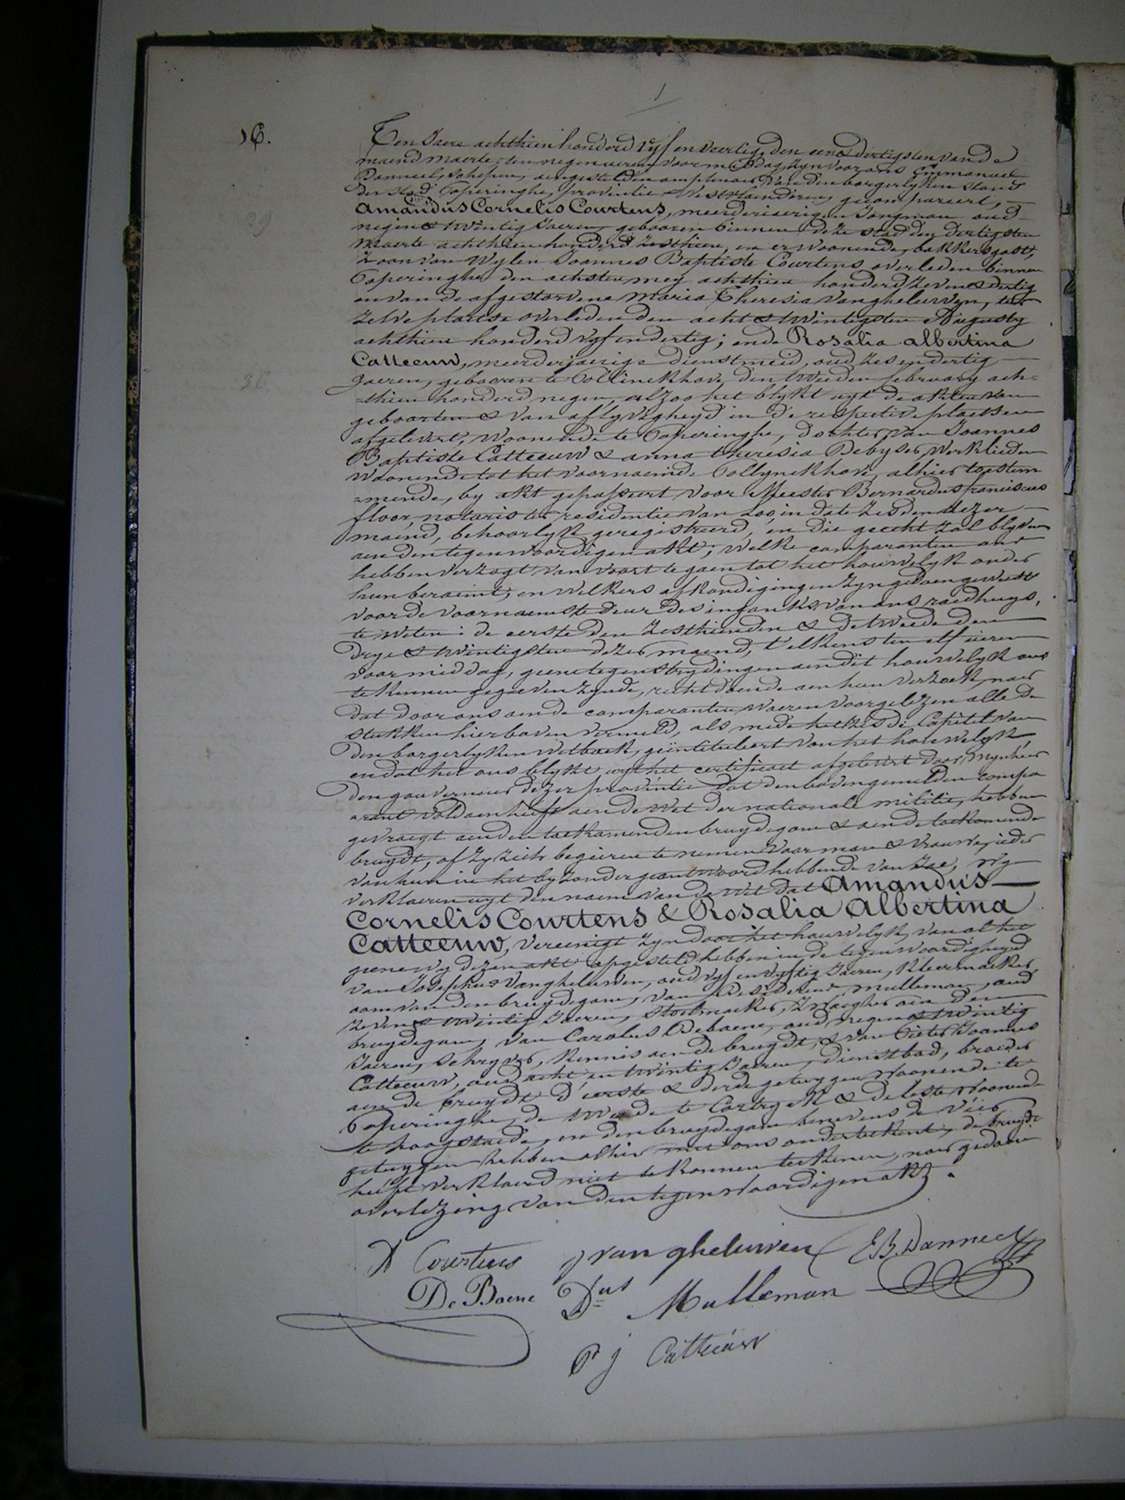 1
16.
Ten Jaere achthien honderd vyf en veertig, den eenendertigsten van de
maend maerte, ten negen ueren voor middag, zyn voor ons Emmanuel
Danneel, schepen, aengesteld en amptenaer van den borgerlyken stand
der stad Poperinghe, provintie Westvlaenderen, gecompareert,
Amandus Cornelis Courtens, meerderjaerigen Jongman, oud
negen & twintig Jaeren, gebooren binnen deze stad den dertigsten
maerte achthien honderd zesthien, en er woonende, bakkersgast,
zoon van Wylen Joannes Baptiste Courtens, overleden binnen
Poperinghe den achsten mey achthien honderd zevenendertig
en van de afgestorvene Maria Theresia Vangheluwen, ter
zelve plaetse overleden den acht & twintigsten Augusty
achthien honderd vyf en dertig; ende Rosalia Albertina
Catteeuw, meerderjaerige dienstmeid, oud zes en dertig
Jaeren, gebooren te Pollinckhove den tweeden february ach-
thien honderd negen, alzoo het blykt uyt de akten van
geboorten & van aflyvigheyd in de respective plaetsen
afgelevert, woonende te Poperinghe, dochter van Joannes
Baptiste Catteeuw & Anna Theresia Debyser, werklieden
woonende tot het voornoemde Pollynckhove, alhier toestem
mende, by akt gepasseert voor Meester Bernardus Franciscus
floor, notaris ter residentie van Loo in date zesden dezer
maend, behoorlyk geregistreerd, en die gehecht zal blyven
aen den tegenwoordigen akt; welke comparanten ons
hebben verzogt van voort te gaen tot het houwelyk onder
hun beraemt, en welkers afkondigingen zyn gedaen geweest
voor de voornaemste deur des ingangs van ons raedhuys,
te weten: de eerste den zesthienden & de tweede den
drye & twintigsten dezer maend, t'elkens ten elf ueren
voor middag, geene tegenstrydingen aen dit houwelyk ons
te kennen gegeven zynde, recht doende aen hun verzoek, naer
dat door ons aen de comparanten waeren voorgelezen alle de
stukken hierboven vermeld, als mede het zesde Capitel van
den borgerlyken wetboek, geintituleert van het houwelyk
en dat het ons blykt uyt het certificaet afgelevert door Mynheer
den gouverneur dezer provintie dat den bovengemelden compa
rant voldaen heeft aen de wet der nationale militie, hebben
gevraegt aen den toekomenden bruydegom & aen de toekomende
bruydt, of zy zich begeeren te nemen voor man & vrouw, ieder
van hun in het byzonder geantwoord hebbende van Jae, wy
verklaeren uyt den naem van de wet dat Amandus
Cornelis Courtens & Rosalia Albertina
Catteeuw, vereenigt zyn door het houwelyk, van al het
geene wy dezen akt opgesteld hebben in de tegenwoordigheyd
van Josephus Vangheluwen, oud vyf en vyftig Jaeren, kleermaeker,
oom van den bruydegom, van Desiderius Mulleman, oud
zeven & twintig Jaeren, stoelmaeker, zwaeger aen den
bruydegom, van Carolus Debaene, oud negen & twintig
Jaeren, schryver, kennis aen de bruydt, & van Pieter Joannes
Catteeuw, oud acht en twintig Jaeren, dienstbode, broeder
aen de bruydt d'eerste & derde getuygen woonende te
Poperinghe, de tweede te Cortryck & de leste woonende
te Hoogstaede, en den bruydegom benevens de vier
getuygen hebben alhier met ons onderteekent, de bruydt
heeft verklaerd niet te konnen teekenen, naer gedaene
overlezing van den tegenwoordigen akt.
A Courtens J vangheluwen E. B. Danneel
De Baene Dus Mulleman
Pr J Catteeuw